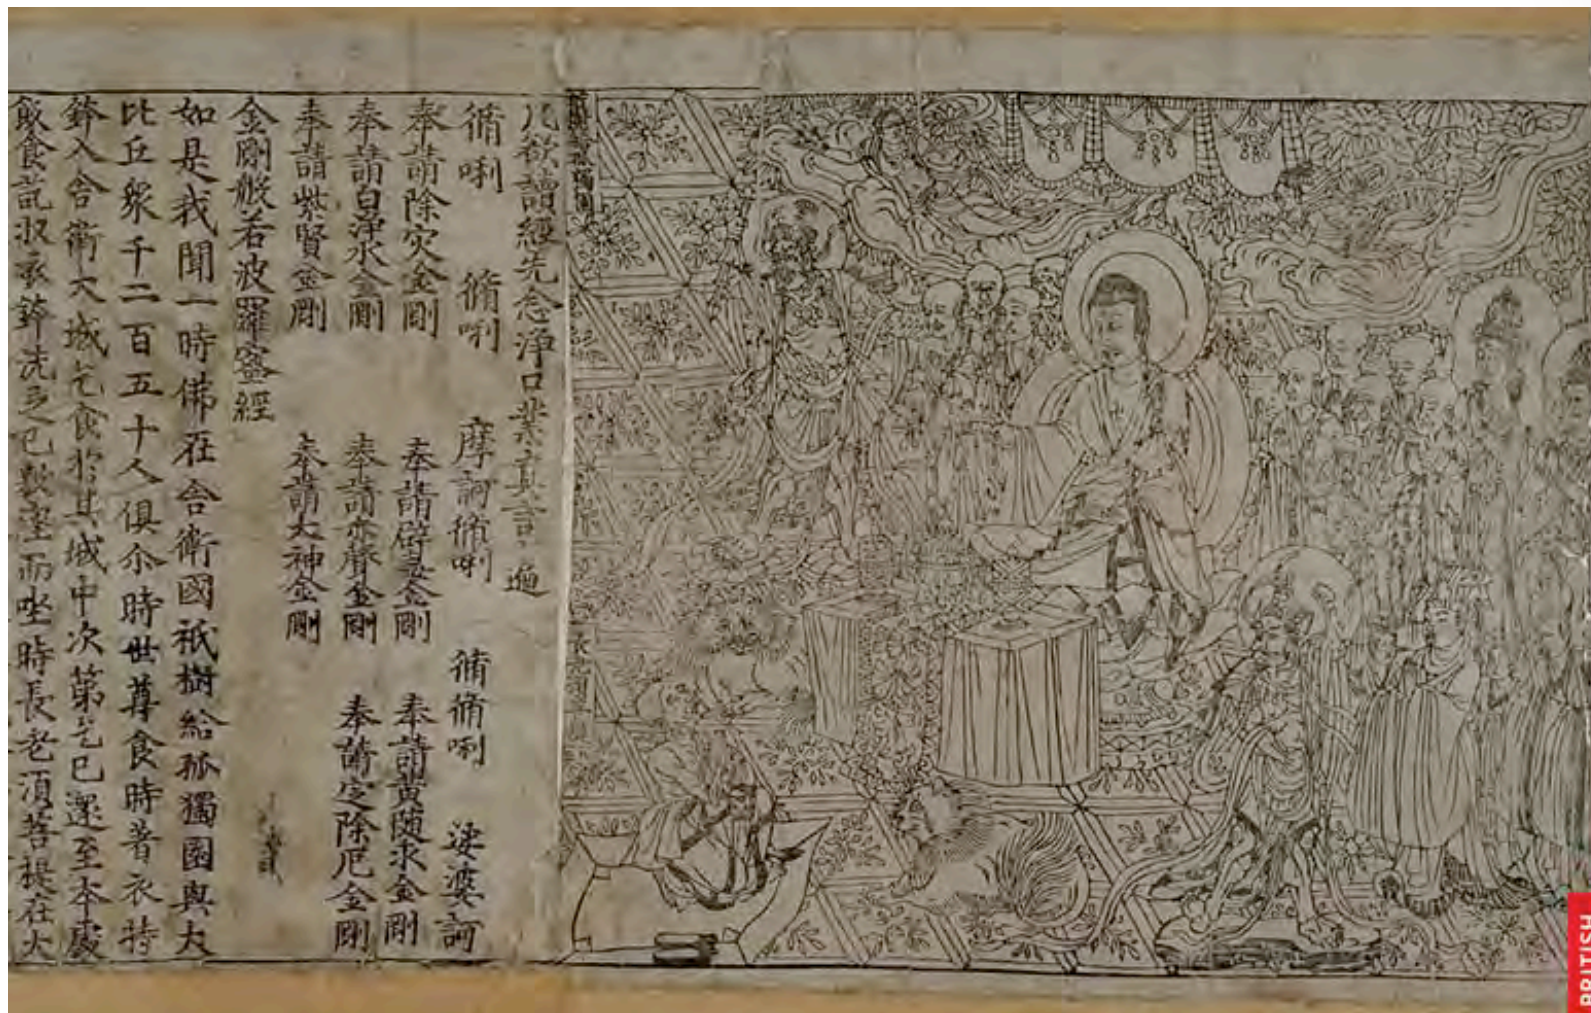 凡欲讀經先念淨口業真言一遍
脩唎 脩唎 摩訶脩唎 脩脩唎 娑婆訶
奉請除灾金剛 奉請辟毒金剛 奉請黄随求金剛
奉請白淨水金剛 奉請赤聲金剛 奉請定除厄金剛
奉請紫賢金剛 奉請大神金剛
金剛般若波羅蜜經
如是我聞一時佛在舍衛國祇樹給孤獨園與大
比丘衆千二百五十人俱尒時世尊食時著衣持
鉢入舍衛大城乞食於其城中次第乞已還至本處
飯食訖收衣鉢洗足已敷座而坐時長老湏菩提在大
祇樹給孤獨園
BRITISH